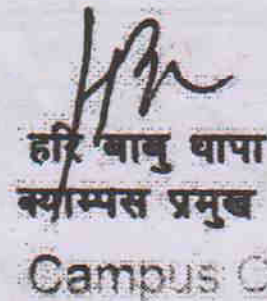 हरि बाबु थापा
क्याम्पस प्रमुख
Campus